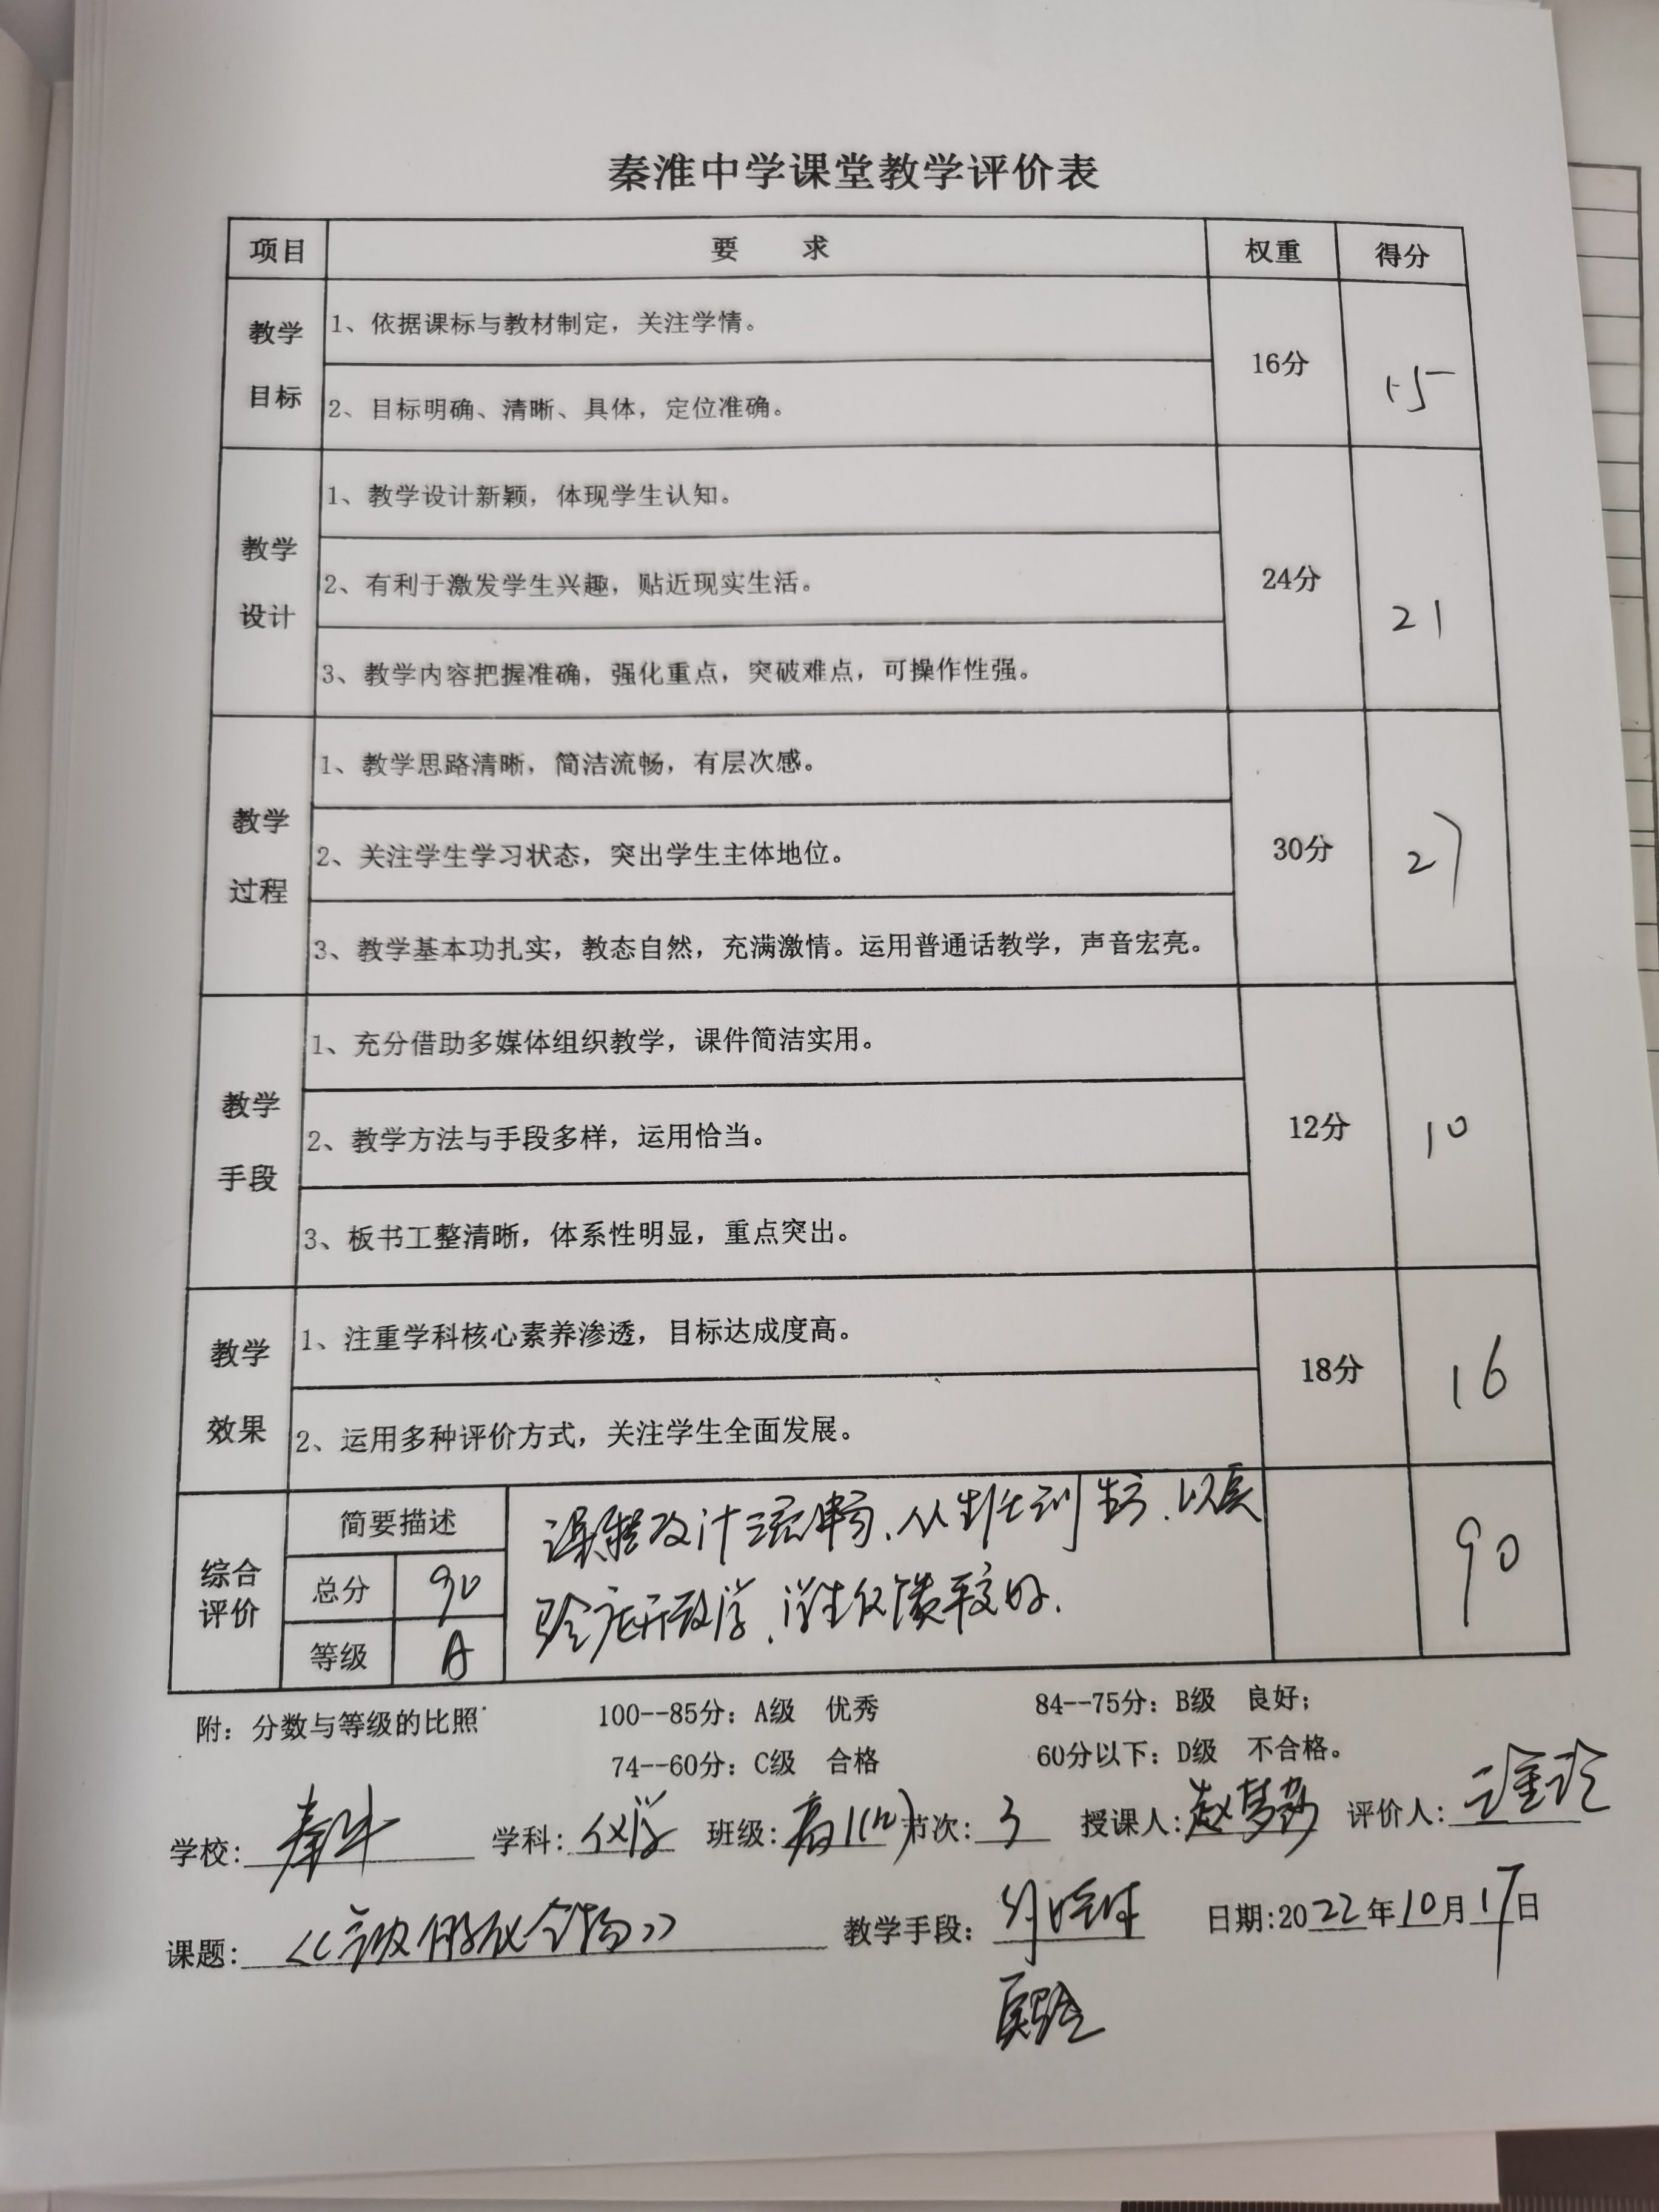 秦淮中学课堂教学评价表
项目 要 求 权重 得分
教学目标 1、依据课标与教材制定，关注学情。 16分 15
2、目标明确、清晰、具体，定位准确。
教学设计 1、教学设计新颖，体现学生认知。 24分 21
2、有利于激发学生兴趣，贴近现实生活。
3、教学内容把握准确，强化重点，突破难点，可操作性强。
教学过程 1、教学思路清晰，简洁流畅，有层次感。 30分 27
2、关注学生学习状态，突出学生主体地位。
3、教学基本功扎实，教态自然，充满激情。运用普通话教学，声音宏亮。
教学手段 1、充分借助多媒体组织教学，课件简洁实用。 12分 10
2、教学方法与手段多样，运用恰当。
3、板书工整清晰，体系性明显，重点突出。
教学效果 1、注重学科核心素养渗透，目标达成度高。 18分 16
2、运用多种评价方式，关注学生全面发展。
综合评价 简要描述 课程设计流畅、从 到 ，以实 90
总分 90 验 开教学，学生反馈较好.
等级 A
附：分数与等级的比照 100--85分：A级 优秀 84--75分：B级 良好；
74--60分：C级 合格 60分以下：D级 不合格。
学校: 秦中 学科: 化学 班级: 高一(12) 节次: 3 授课人: 赵梦莎 评价人:
课题: 《 》 教学手段: 日期:2022年10月17日
实验